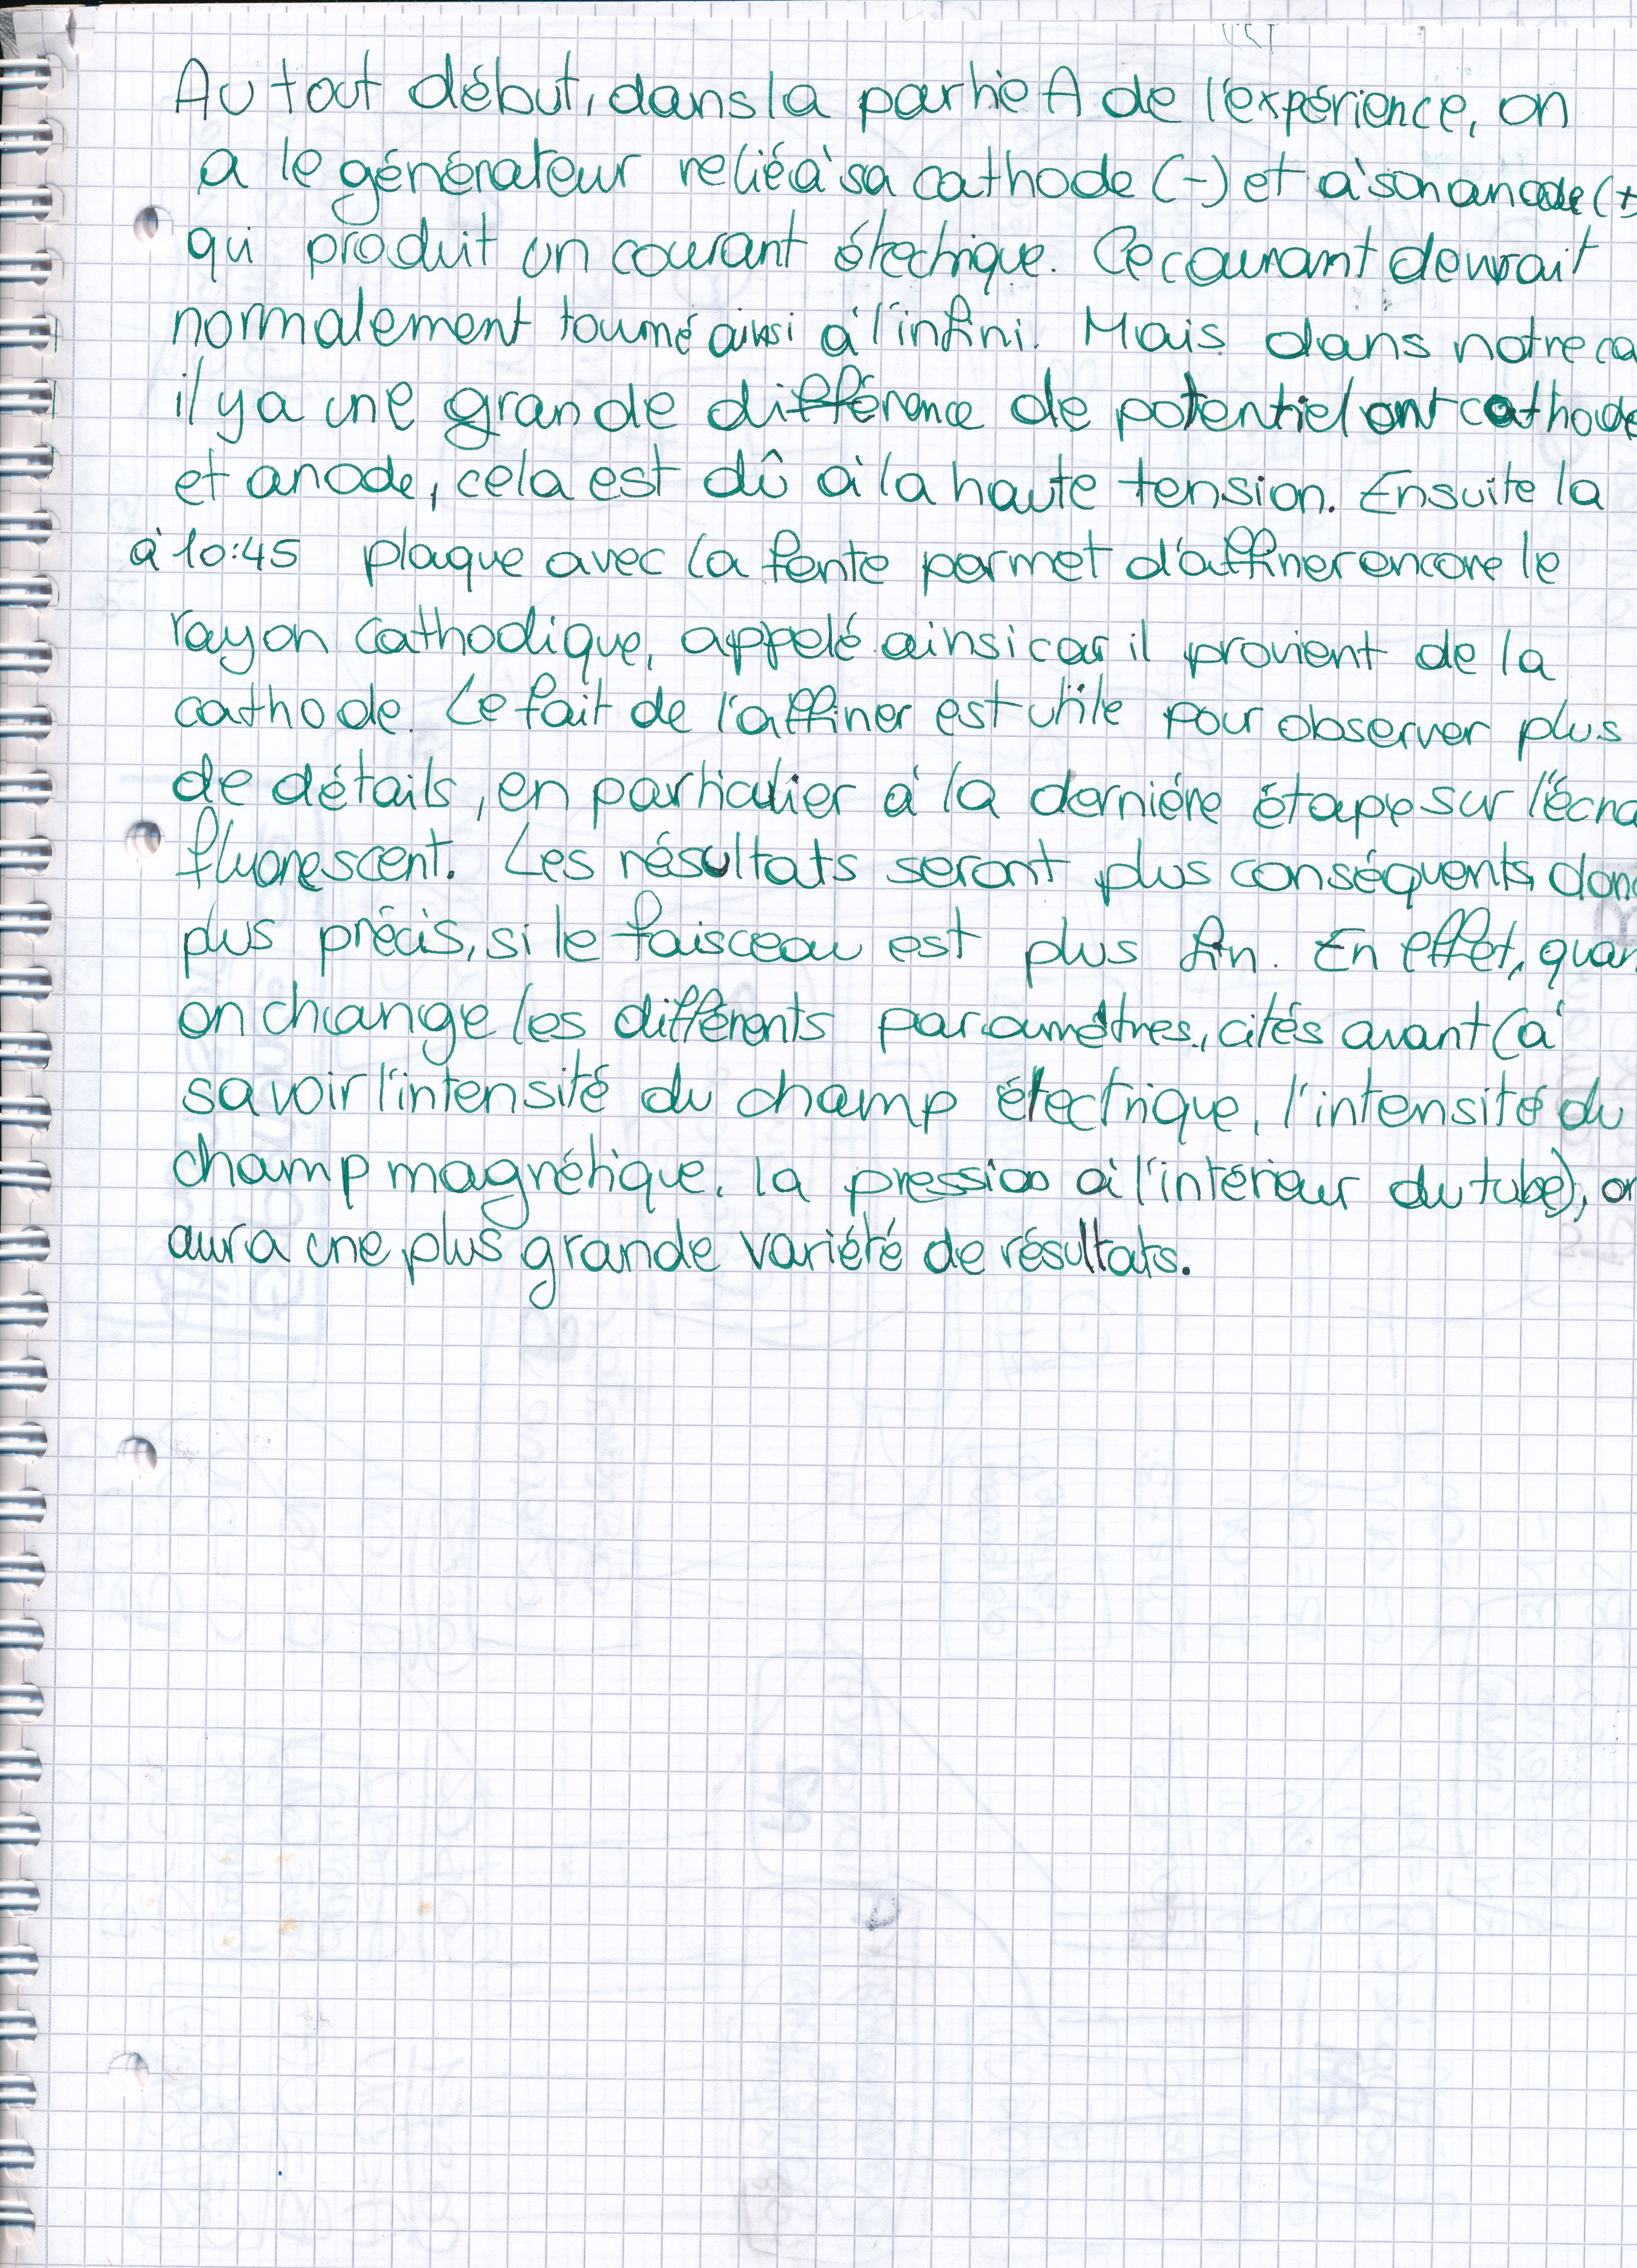 Au tout début, dans la partie A de l'expérience, on
a le générateur relié à sa cathode (-) et à son anode (+
qui produit un courant électrique. Ce courant devrait
normalement tourné ainsi à l'infini. Mais dans notre ca
il y a une grande différence de potentiel ont cathode
et anode, cela est dû à la haute tension. Ensuite la
à 10:45 plaque avec la fente permet d'affiner encore le
rayon cathodique, appelé ainsi car il provient de la
cathode. Le fait de l'affiner est utile pour observer plus
de détails, en particulier à la dernière étape sur l'écra
fluorescent. Les résultats seront plus conséquents, donc
plus précis, si le faisceau est plus fin. En effet, quan
on change les différents paramètres, cités avant (à
savoir l'intensité du champ électrique, l'intensité du
champ magnétique, la pression à l'intérieur du tube), on
aura une plus grande variété de résultats.